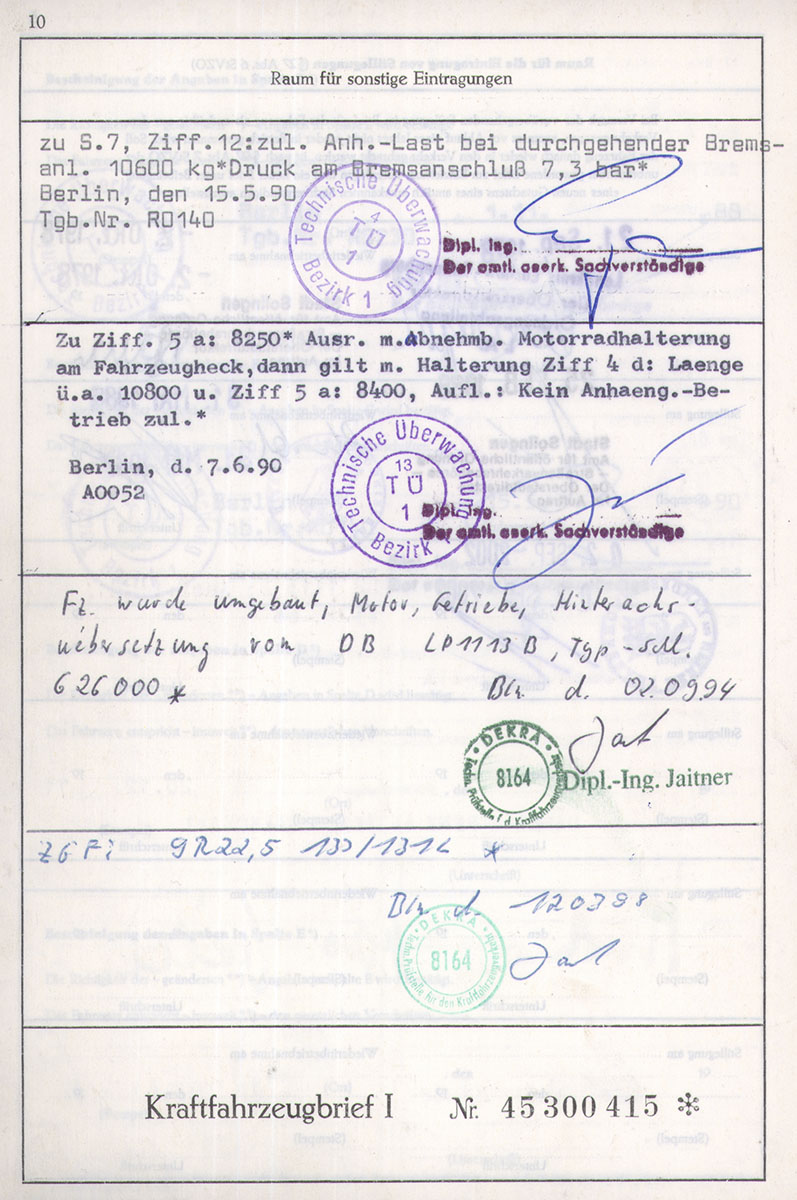 10
Raum für sonstige Eintragungen
zu S.7, Ziff.12:zul. Anh.-Last bei durchgehender Brems-
anl. 10600 kg*Druck am Bremsanschluß 7,3 bar*
Berlin, den 15.5.90
Tgb.Nr. R0140
Technische Überwachung
4
TÜ
1
Bezirk 1
Dipl. Ing.
Der amtl. anerk. Sachverständige
Zu Ziff. 5 a: 8250* Ausr. m.Abnehmb. Motorradhalterung
am Fahrzeugheck,dann gilt m. Halterung Ziff 4 d: Laenge
ü.a. 10800 u. Ziff 5 a: 8400, Aufl.: Kein Anhaeng.-Be-
trieb zul.*
Berlin, d. 7.6.90
A0052
Technische Überwachung
13
TÜ
1
Bezirk 1
Dipl. Ing.
Der amtl. anerk. Sachverständige
Fz. wurde umgebaut, Motor, Getriebe, Hinterachs-
uebersetzung vom DB LP1113B, Typ-schl.
626000*
Bln d. 02.09.94
DEKRA
8164
Techn. Prüfstelle f. d. Kraftfahrzeugverkehr
Dipl.-Ing. Jaitner
ZGFi 9R22,5 133/131L *
Bln d. 120398
DEKRA
8164
Techn. Prüfstelle für den Kraftfahrzeugverkehr
Kraftfahrzeugbrief I Nr. 45300415 *